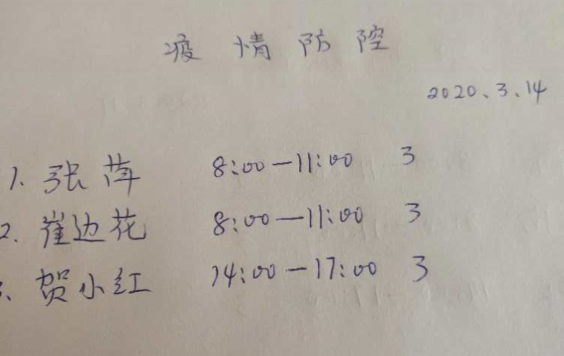 疫情防控
2020.3.14
1. 张萍 8:00—11:00 3
2. 崔边花 8:00—11:00 3
3. 贺小红 14:00—17:00 3